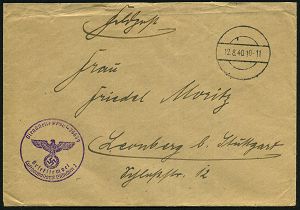 Feldpost
12.8.40.10-11
Frau
Friedel Moritz
Leonberg b. Stuttgart
Schloßstr. 12
Briefstempel